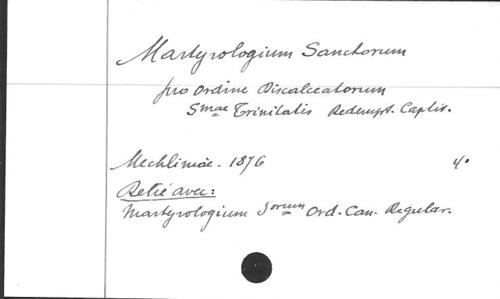 Martyrologium Sanctorum
pro ordine Discalceatorum
Smae Trinitatis Redempt. Captiv.
Mechliniae - 1876 4°
Relié avec:
Martyrologium Sorum Ord. Can. Regular.